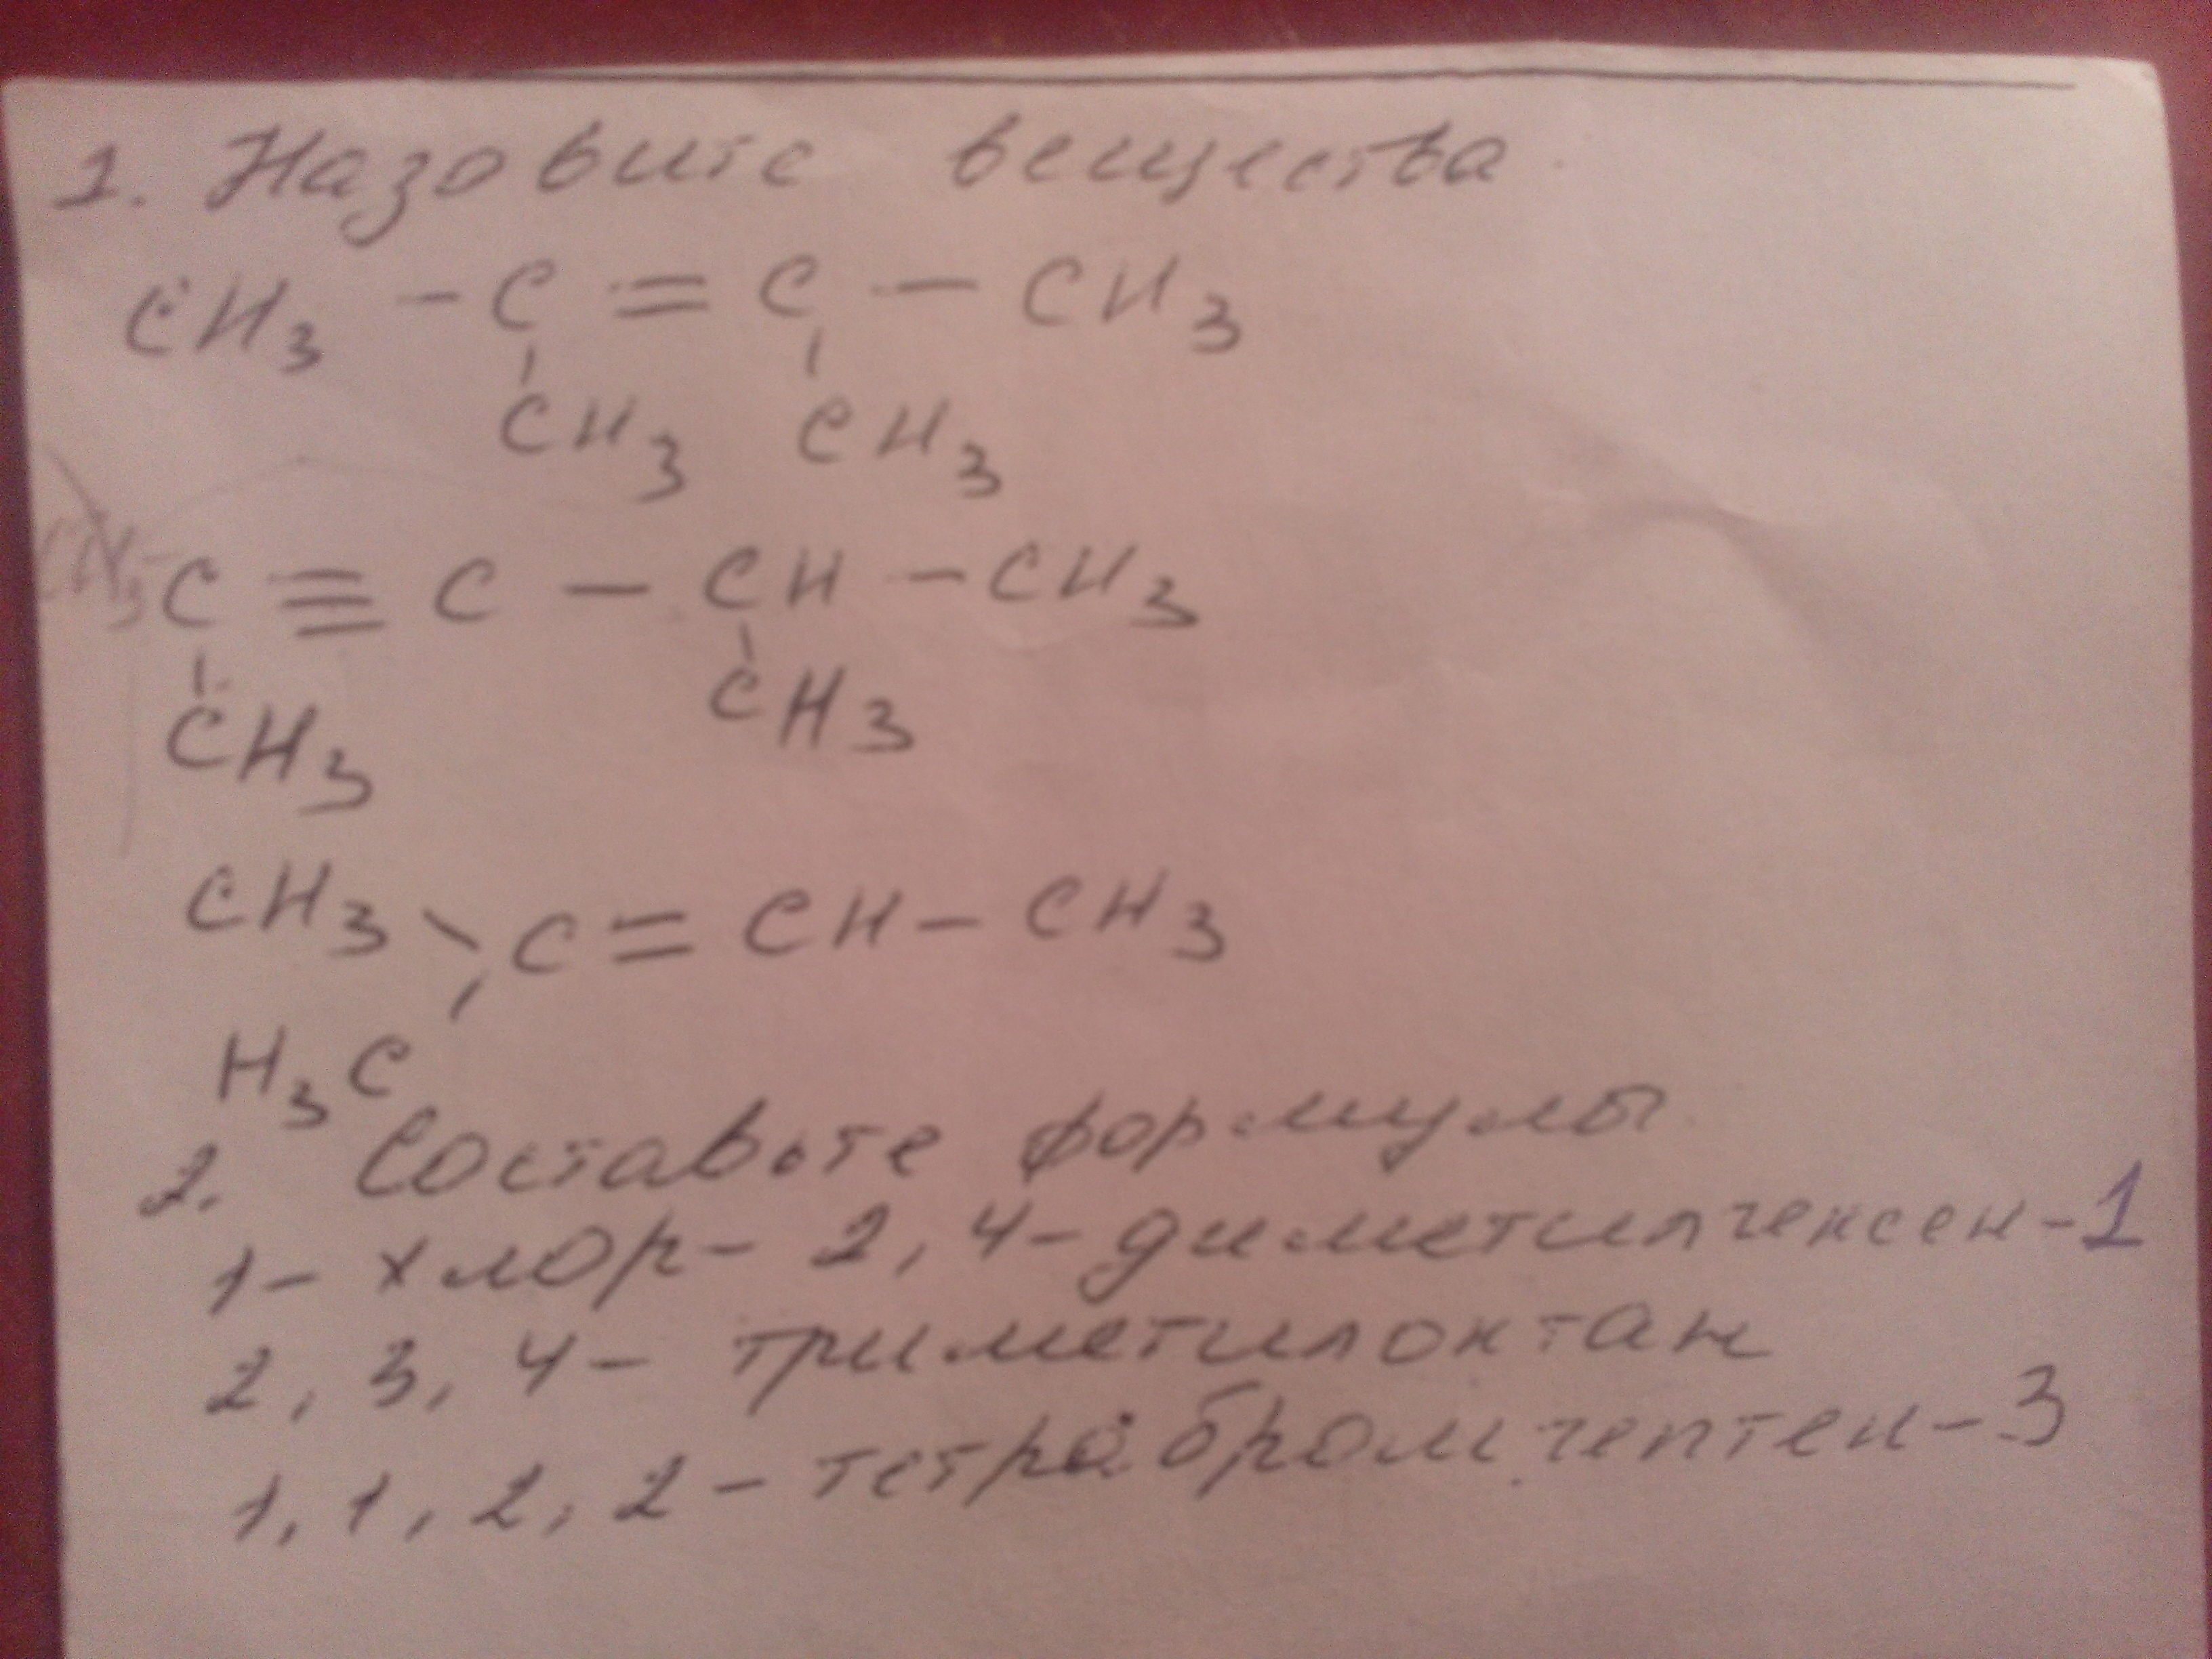 1. Назовите вещества
CH3 - C = C - CH3
CH3 CH3
CH3- C ≡ C - CH - CH3
CH3 CH3
CH3 \ C = CH - CH3
H3C /
2. Составьте формулы
1- хлор- 2, 4- диметилгексен-1
2, 3, 4- триметилоктан
1, 1, 2, 2- тетрабромгептен-3